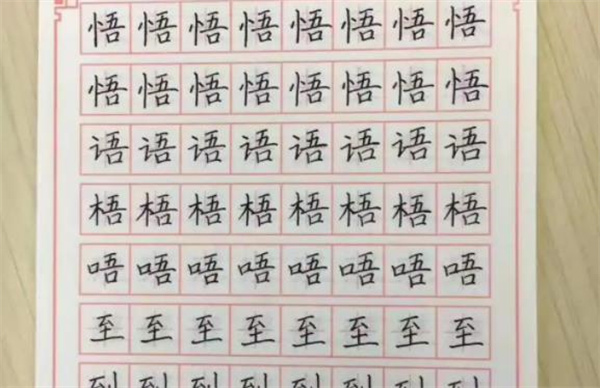 悟悟悟悟悟悟悟悟
悟悟悟悟悟悟悟悟
语语语语语语语语
梧梧梧梧梧梧梧梧
唔唔唔唔唔唔唔唔
至至至至至至至至
到到到到到到到到